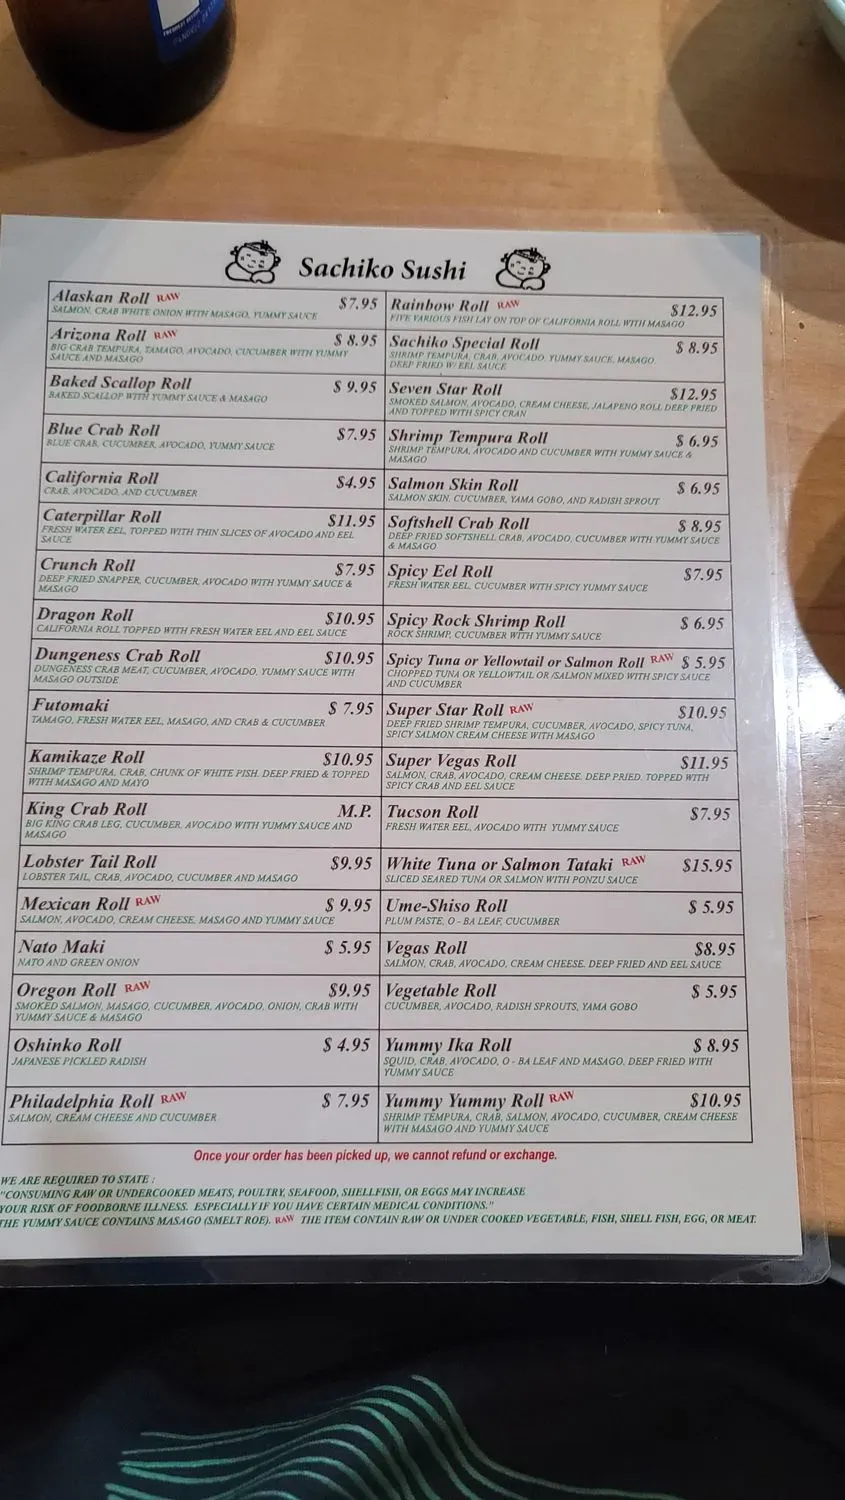 Sachiko Sushi
Alaskan Roll RAW $7.95
SALMON, CRAB WHITE ONION WITH MASAGO, YUMMY SAUCE
Arizona Roll RAW $ 8.95
BIG CRAB TEMPURA, TAMAGO, AVOCADO, CUCUMBER WITH YUMMY
SAUCE AND MASAGO
Baked Scallop Roll $ 9.95
BAKED SCALLOP WITH YUMMY SAUCE & MASAGO
Blue Crab Roll $7.95
BLUE CRAB, CUCUMBER, AVOCADO, YUMMY SAUCE
California Roll $4.95
CRAB, AVOCADO, AND CUCUMBER
Caterpillar Roll $11.95
FRESH WATER EEL, TOPPED WITH THIN SLICES OF AVOCADO AND EEL
SAUCE
Crunch Roll $7.95
DEEP FRIED SNAPPER, CUCUMBER, AVOCADO WITH YUMMY SAUCE &
MASAGO
Dragon Roll $10.95
CALIFORNIA ROLL TOPPED WITH FRESH WATER EEL AND EEL SAUCE
Dungeness Crab Roll $10.95
DUNGENESS CRAB MEAT, CUCUMBER, AVOCADO, YUMMY SAUCE WITH
MASAGO OUTSIDE
Futomaki $ 7.95
TAMAGO, FRESH WATER EEL, MASAGO, AND CRAB & CUCUMBER
Kamikaze Roll $10.95
SHRIMP TEMPURA, CRAB, CHUNK OF WHITE PISH. DEEP FRIED & TOPPED
WITH MASAGO AND MAYO
King Crab Roll M.P.
BIG KING CRAB LEG, CUCUMBER, AVOCADO WITH YUMMY SAUCE AND
MASAGO
Lobster Tail Roll $9.95
LOBSTER TAIL, CRAB, AVOCADO, CUCUMBER AND MASAGO
Mexican Roll RAW $ 9.95
SALMON, AVOCADO, CREAM CHEESE. MASAGO AND YUMMY SAUCE
Nato Maki $ 5.95
NATO AND GREEN ONION
Oregon Roll RAW $9.95
SMOKED SALMON, MASAGO, CUCUMBER, AVOCADO, ONION, CRAB WITH
YUMMY SAUCE & MASAGO
Oshinko Roll $ 4.95
JAPANESE PICKLED RADISH
Philadelphia Roll RAW $ 7.95
SALMON, CREAM CHEESE AND CUCUMBER
Rainbow Roll RAW $12.95
FIVE VARIOUS FISH LAY ON TOP OF CALIFORNIA ROLL WITH MASAGO
Sachiko Special Roll $ 8.95
SHRIMP TEMPURA, CRAB, AVOCADO, YUMMY SAUCE, MASAGO,
DEEP FRIED W/ EEL SAUCE
Seven Star Roll $12.95
SMOKED SALMON, AVOCADO, CREAM CHEESE, JALAPENO ROLL DEEP FRIED
AND TOPPED WITH SPICY CRAN
Shrimp Tempura Roll $ 6.95
SHRIMP TEMPURA, AVOCADO AND CUCUMBER WITH YUMMY SAUCE &
MASAGO
Salmon Skin Roll $ 6.95
SALMON SKIN, CUCUMBER, YAMA GOBO, AND RADISH SPROUT
Softshell Crab Roll $ 8.95
DEEP FRIED SOFTSHELL CRAB, AVOCADO, CUCUMBER WITH YUMMY SAUCE
& MASAGO
Spicy Eel Roll $7.95
FRESH WATER EEL, CUCUMBER WITH SPICY YUMMY SAUCE
Spicy Rock Shrimp Roll $ 6.95
ROCK SHRIMP, CUCUMBER WITH YUMMY SAUCE
Spicy Tuna or Yellowtail or Salmon Roll RAW $ 5.95
CHOPPED TUNA OR YELLOWTAIL OR /SALMON MIXED WITH SPICY SAUCE
AND CUCUMBER
Super Star Roll RAW $10.95
DEEP FRIED SHRIMP TEMPURA, CUCUMBER, AVOCADO, SPICY TUNA,
SPICY SALMON CREAM CHEESE WITH MASAGO
Super Vegas Roll $11.95
SALMON, CRAB, AVOCADO, CREAM CHEESE. DEEP PRIED. TOPPED WITH
SPICY CRAB AND EEL SAUCE
Tucson Roll $7.95
FRESH WATER EEL, AVOCADO WITH YUMMY SAUCE
White Tuna or Salmon Tataki RAW $15.95
SLICED SEARED TUNA OR SALMON WITH PONZU SAUCE
Ume-Shiso Roll $ 5.95
PLUM PASTE, O - BA LEAF, CUCUMBER
Vegas Roll $8.95
SALMON, CRAB, AVOCADO, CREAM CHEESE. DEEP FRIED AND EEL SAUCE
Vegetable Roll $ 5.95
CUCUMBER, AVOCADO, RADISH SPROUTS, YAMA GOBO
Yummy Ika Roll $ 8.95
SQUID, CRAB, AVOCADO, O - BA LEAF AND MASAGO, DEEP FRIED WITH
YUMMY SAUCE
Yummy Yummy Roll RAW $10.95
SHRIMP TEMPURA, CRAB, SALMON, AVOCADO, CUCUMBER, CREAM CHEESE
WITH MASAGO AND YUMMY SAUCE
Once your order has been picked up, we cannot refund or exchange.
WE ARE REQUIRED TO STATE :
"CONSUMING RAW OR UNDERCOOKED MEATS, POULTRY, SEAFOOD, SHELLFISH, OR EGGS MAY INCREASE
YOUR RISK OF FOODBORNE ILLNESS. ESPECIALLY IF YOU HAVE CERTAIN MEDICAL CONDITIONS."
THE YUMMY SAUCE CONTAINS MASAGO (SMELT ROE). RAW THE ITEM CONTAIN RAW OR UNDER COOKED VEGETABLE, FISH, SHELL FISH, EGG, OR MEAT.